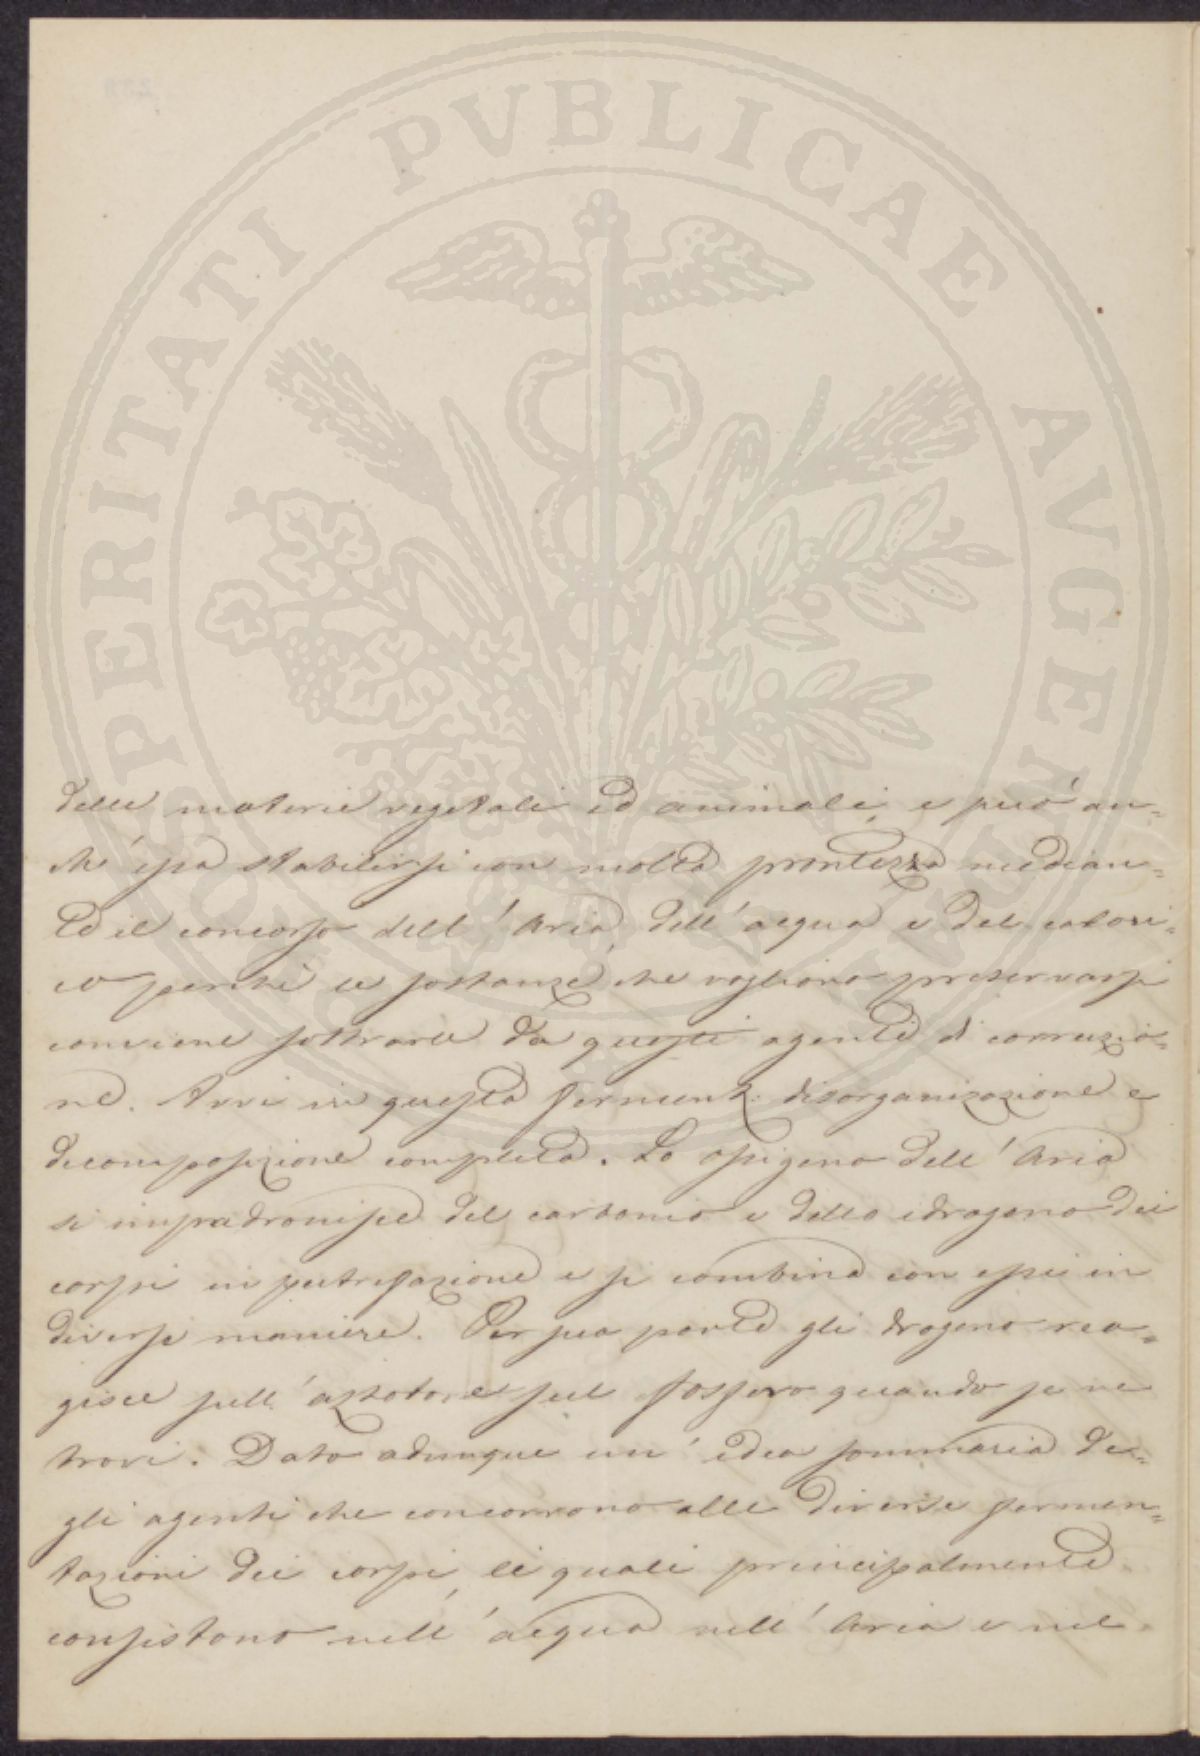 PROSPERITATI PVBLICAE AVGENDAE
delle materie vegetali ed animali, e però an=
che essa stabilirsi con molta prontezza median=
te il concorso dell'Aria, dell'acqua e del calori=
co perchè le sostanze che vogliono preservarsi
conviene sottrarle da questi agenti di corruzio=
ne. Avvi in questa ferment. disorganizazione e
decomposizione completa. Lo ossigeno dell'Aria
si impadronisce del carbonio e dello idrogeno dei
corpi in putrefazione e si combina con essi in
diverse maniere. Per sua parte gli drogeno rea=
gisce sull' sul fosforo quando se ne
trovi. Dato adunque un' idea sommaria de=
gli agenti che concorrono alle diverse fermen=
tazioni dei corpi, li quali principalmente
consistono nell'acqua nell'Aria e nel